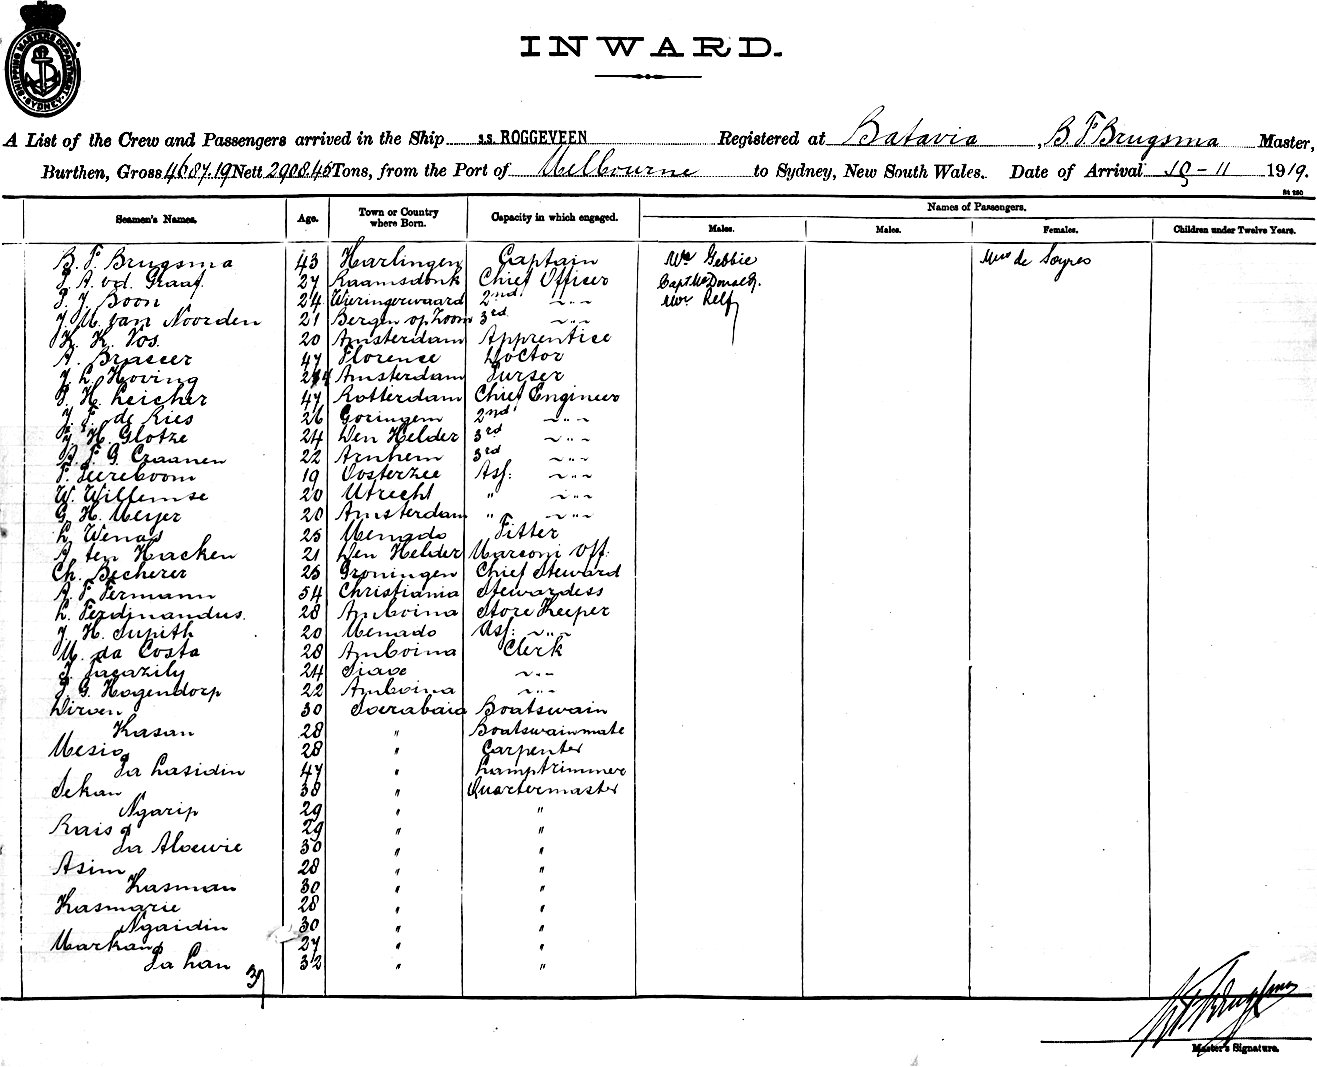 SHIPPING MASTERS DEPARTMENT SYDNEY
INWARD.
A List of the Crew and Passengers arrived in the Ship s.s. ROGGEVEEN Registered at Batavia, B F Brugsma Master,
Burthen, Gross 4687.19 Nett 2908.45 Tons, from the Port of Melbourne to Sydney, New South Wales. Date of Arrival -11 1919.
Seamen's Names. Age. Town or Country where Born. Capacity in which engaged. Names of Passengers.
Males. Males. Females. Children under Twelve Years.
B. F. Brugsma 43 Harlingen Captain Mr Gebbie Mrs de Soyres
J. A. vd. Graaf 27 Raamsdonk Chief Officer Capt McDonald.
J. J. Boon 24 Wieringerwaard 2nd ~"~ Mr. Relf
J. M. van Noorden 21 Bergen op Zoom 3rd ~"~
K. K. Vos. 20 Amsterdam Apprentice
A. 47 Florence Doctor
J. L. Hoving Amsterdam Purser
J. H. Leicher 47 Rotterdam Chief Engineer
J. F. de Ries 26 Goringem 2nd ~"~
J. H. Glotze 24 Den Helder 3rd ~"~
F. G. Craanen 22 Arnhem 3rd ~"~
F. Peereboom 19 Oosterzee Ass: ~"~
W. Willemse 20 Utrecht " ~"~
G. H. Meyer 20 Amsterdam " ~"~
L. Wenas 25 Menado Fitter
A. ten Hacken 21 Den Helder Marconi Off.
Ch. Becherer 25 Groningen Chief Steward
A. F. Fermann 54 Christiania Stewardess
L. Ferdinandus. 28 Amboina Store Keeper
J. H. Supith 20 Menado Ass: ~"~
M. da Costa 28 Amboina Clerk
J. 24 Siaoe ~"~
J. G. Hogendorp 22 Amboina ~"~
Wiroen 30 Soerabaia Boatswain
Kasan 28 " Boatswainmate
Mesia 28 " Carpenter
La Lasidin 47 " Lamptrimmer
Sekan 38 " Quartermaster
Ngarip 29 " "
Rais 29 " "
La Aloewie 30 " "
Asim 28 " "
Kasman 30 " "
Kasmarie 28 " "
Ngaidin 30 " "
Markan 27 " "
La Lan 32 " "
37
Master's Signature.